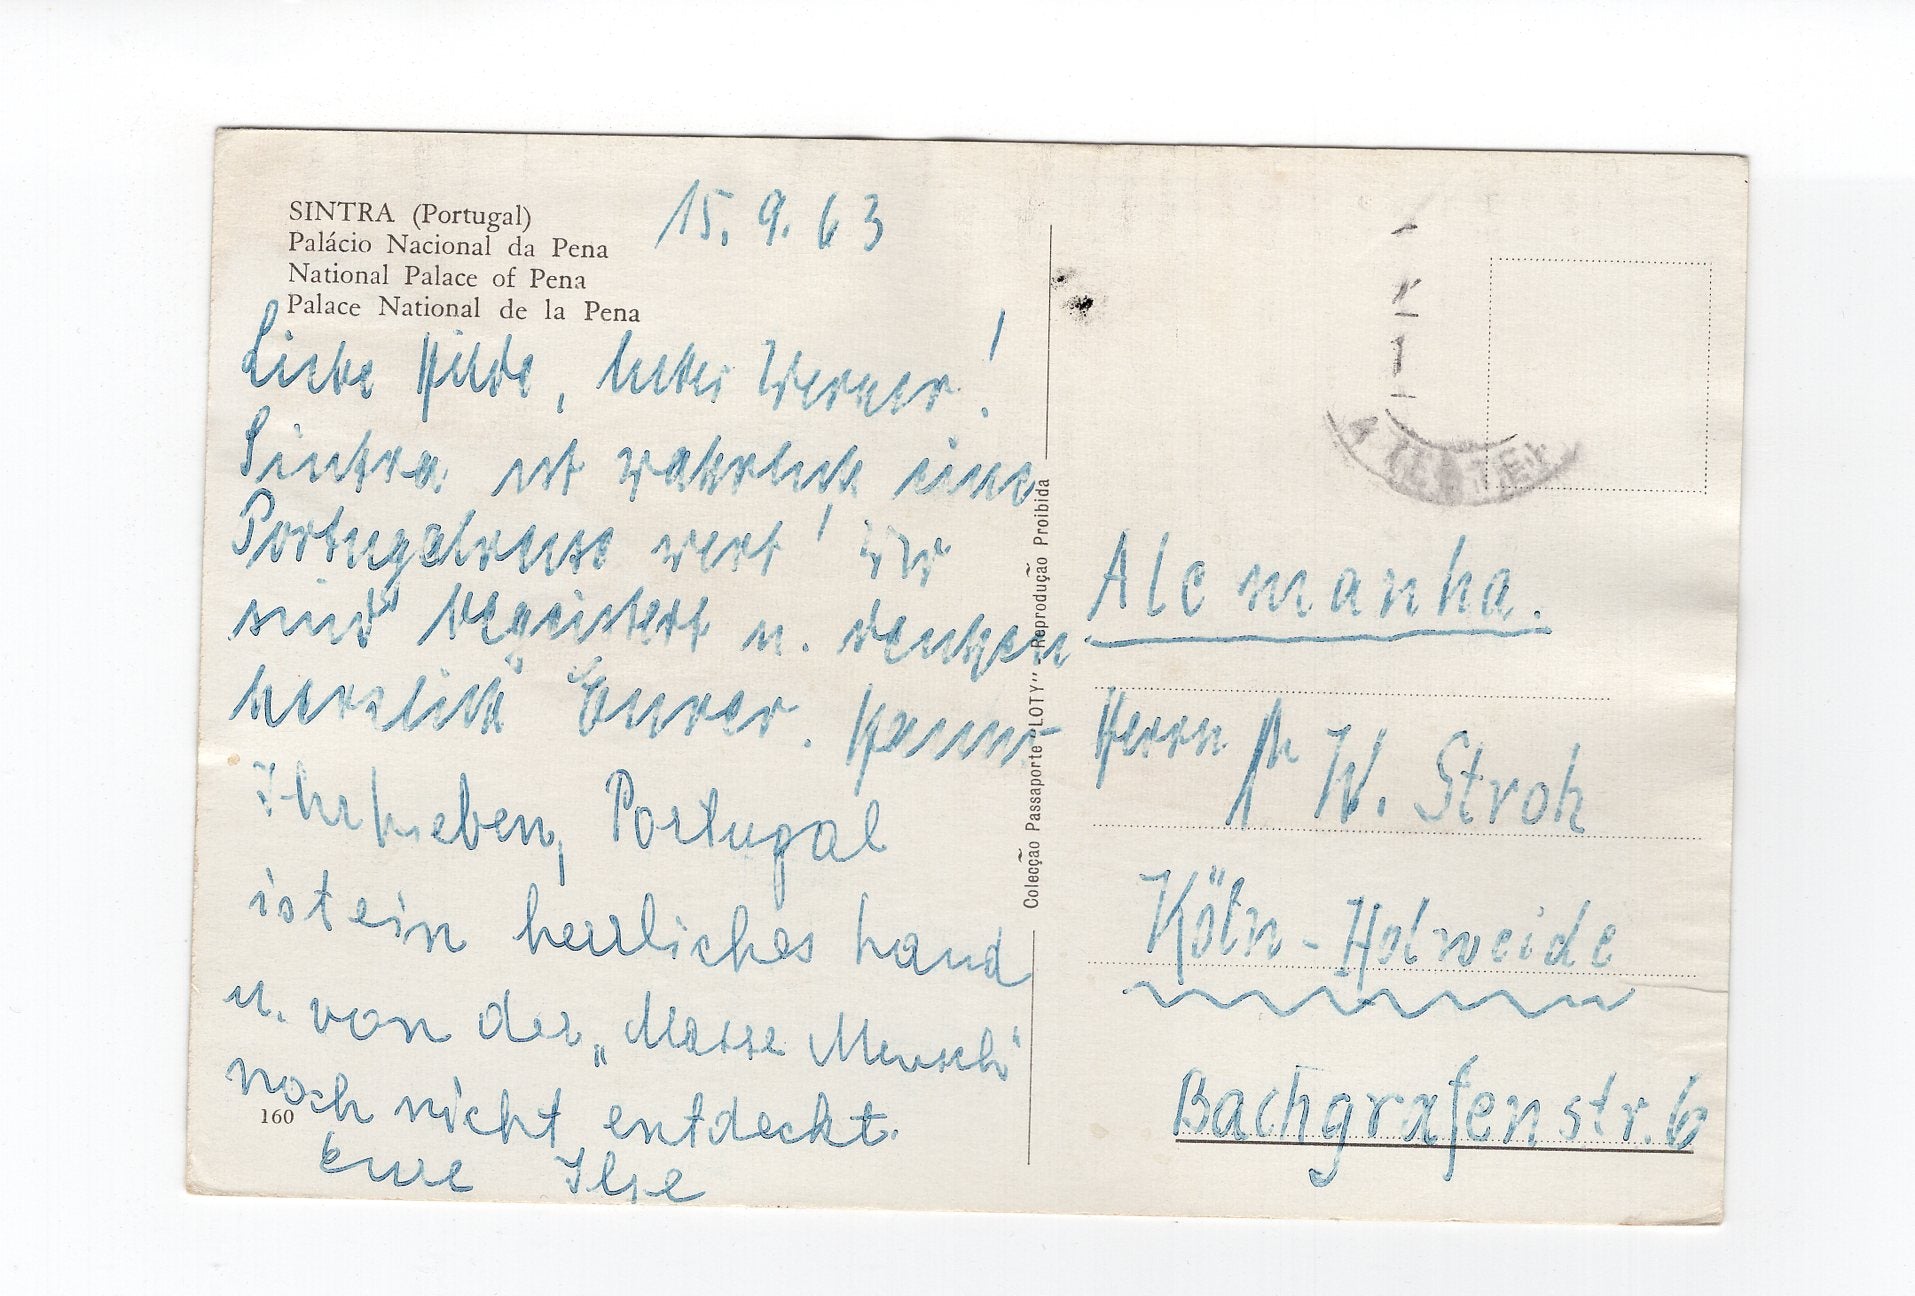 SINTRA (Portugal)
Palácio Nacional da Pena
National Palace of Pena
Palace National de la Pena
15. 9. 63
Liebe Hilde, lieber Werner!
Sintra ist wahrlich eine
Portugalreise wert! Wir
sind begeistert u. denken
herzlich Eurer.
Ihr Lieben, Portugal
ist ein herrliches Land
u. von der „Masse Mensch"
noch nicht entdeckt.
Eure Ilse
160
Colecção Passaporte "LOTY" Reprodução Proibida
Alemanha.
Herrn W. Stroh
Köln-Holweide
Bachgrafenstr. 6